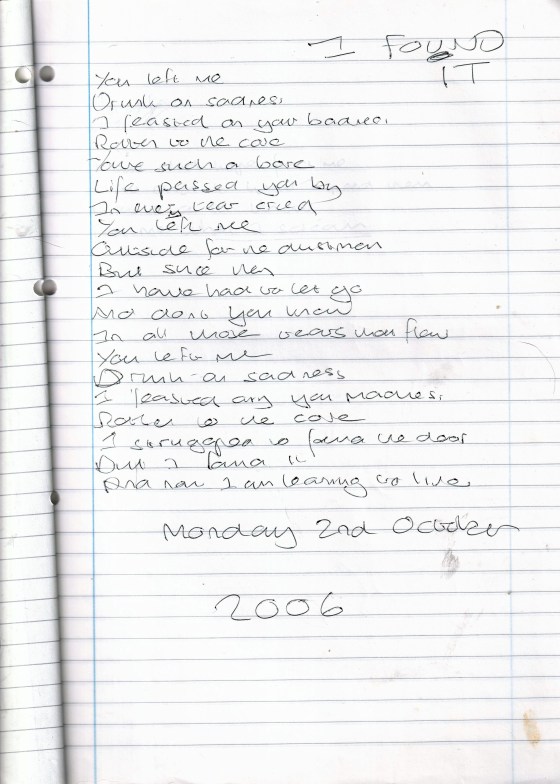 I FOUND
IT
You left me
Drunk on sadness
I feasted on your badness
Rotten to the core
You're such a bore
Life passed you by
In every tear cried
You left me
Outside for the dustmen
But since then
I have had to let go
And don't you know
In all those tears that flow
You left me
Drunk on sadness
I feasted on your madness
Rotten to the core
I struggled to find the door
But I found it
And now I am learning to live
Monday 2nd October
2006